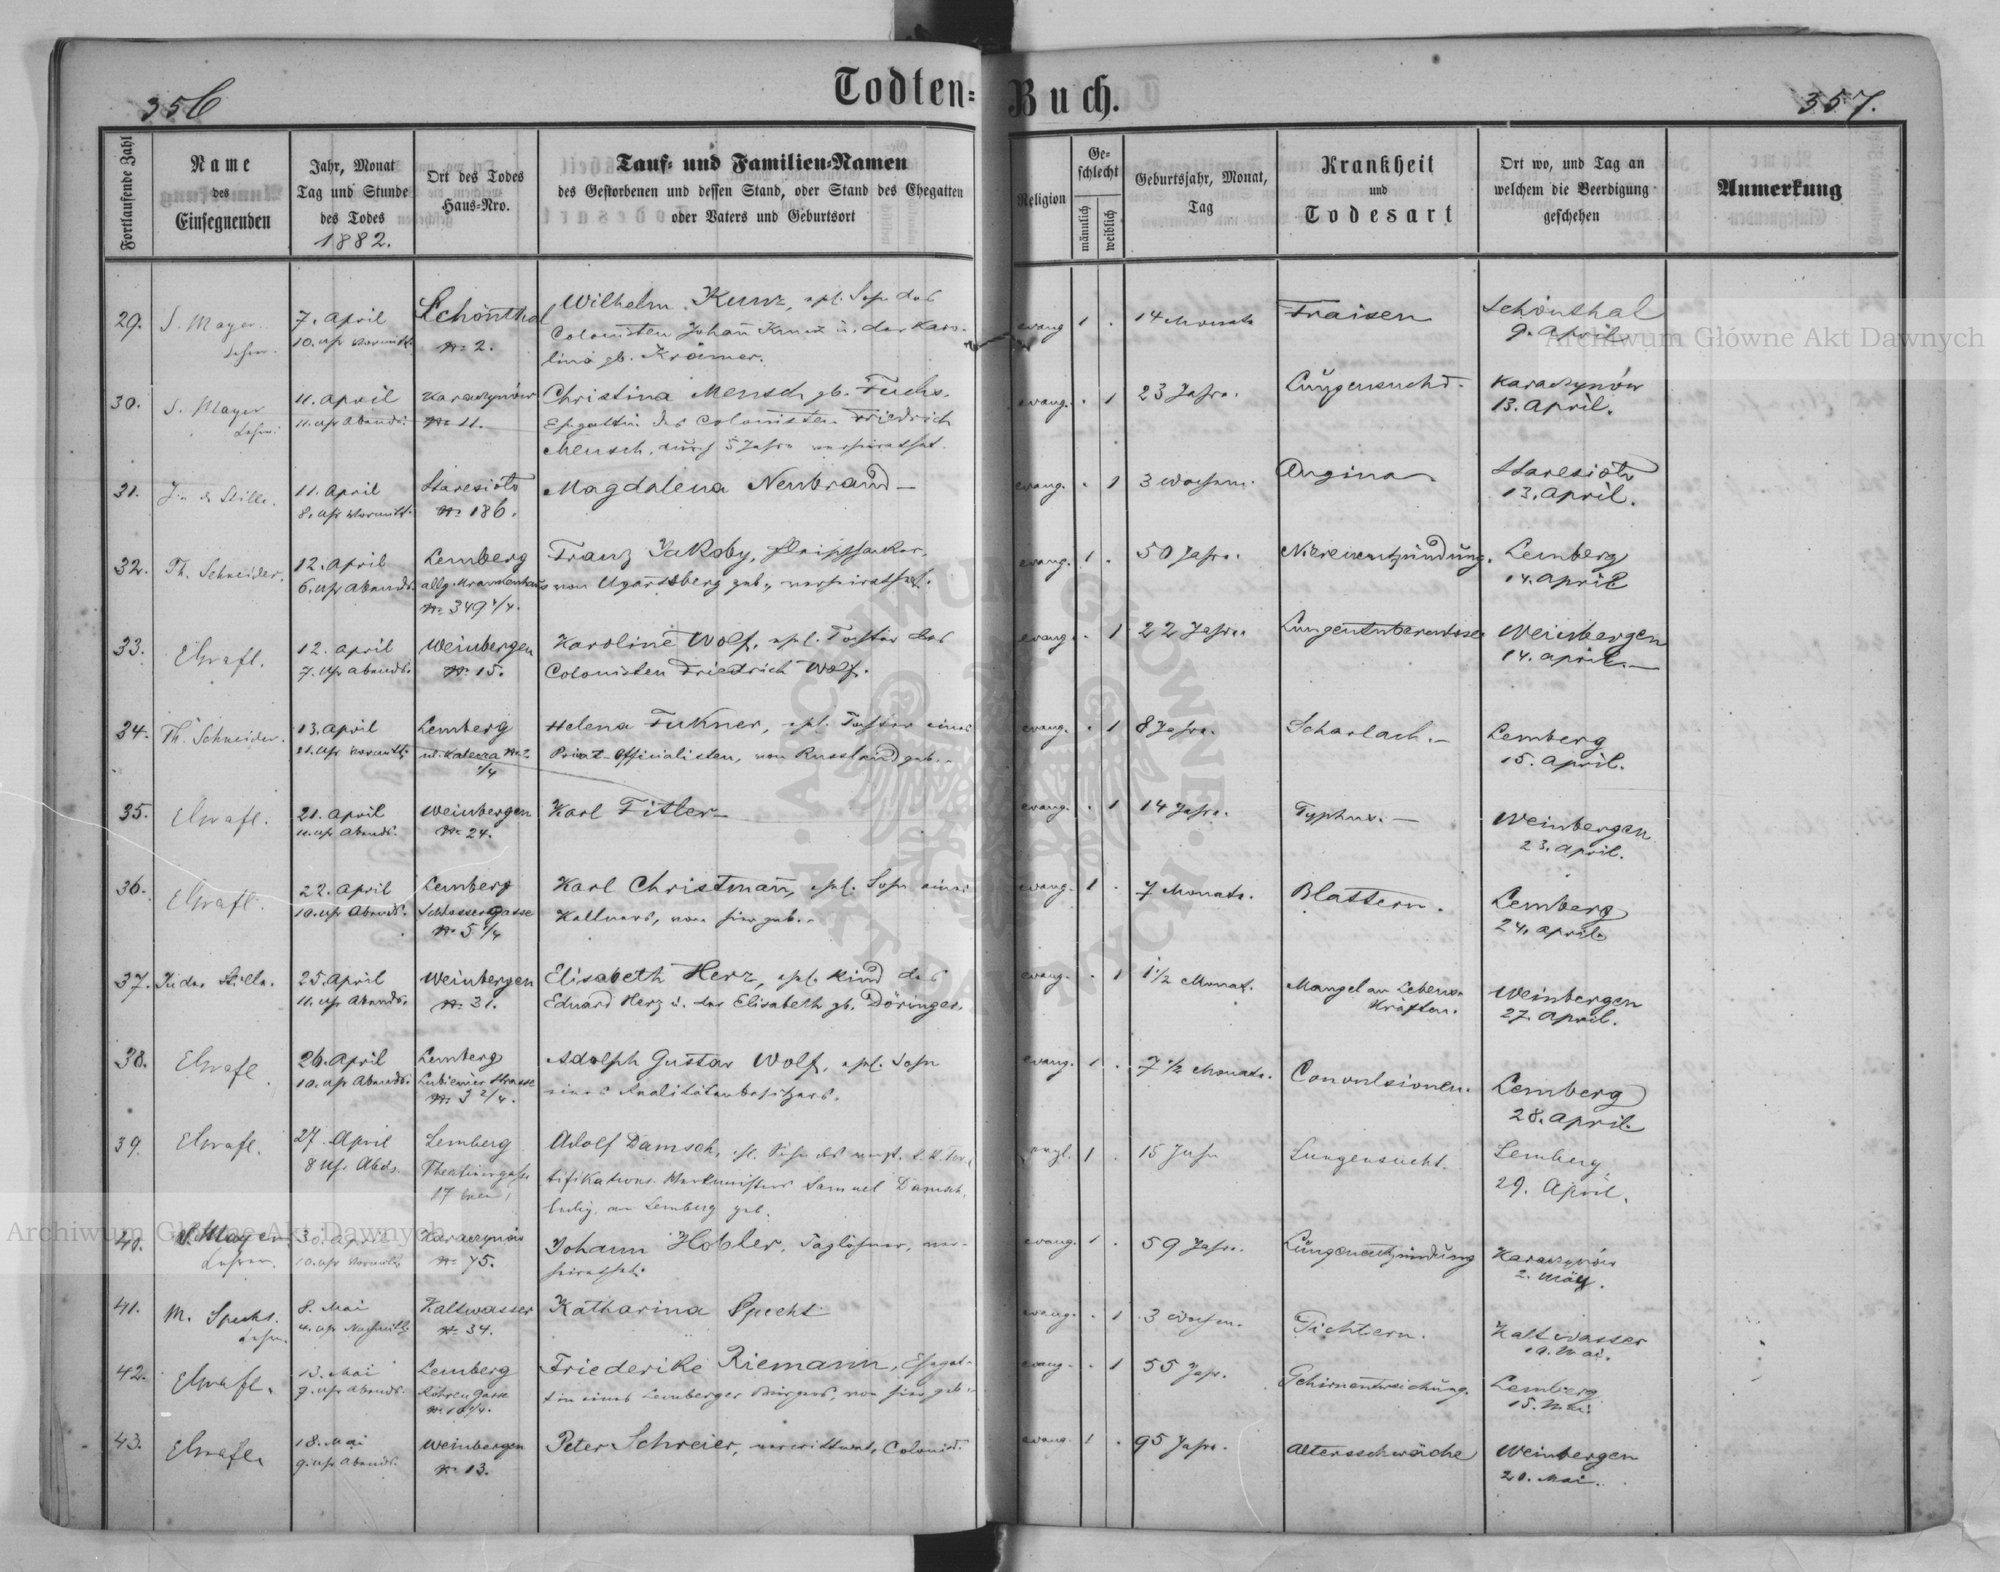 Todten-Buch.
356
357.
Fortlaufende Zahl
Name
des
Einsegnenden
Jahr, Monat
Tag und Stunde
des Todes
1882.
Ort des Todes
Haus-Nro.
Tauf- und Familien-Namen
des Gestorbenen und dessen Stand, oder Stand des Ehegatten
oder Vaters und Geburtsort
Religion
Ge-
schlecht
männlich
weiblich
Geburtsjahr, Monat,
Tag
Krankheit
und
Todesart
Ort wo, und Tag an
welchem die Beerdigung
geschehen
Anmerkung
29.
S. Mayer
Lehrer.
7. April
10. Uhr Vormitt.
Schönthal
Nr. 2.
Wilhelm Kunz, ehl. Sohn des
Colonisten Johann Kunz u. der Karo-
lina gb. Krämer.
evang.
1
14 Monate
Fraisen
Schönthal
9. April
30.
S. Mayer
Lehrer.
11. April
11. Uhr Abends.
Karaczynów
Nr. 11.
Christina Mensch gb. Fuchs,
Ehgattin des Colonisten Friedrich
Mensch, durch 5 Jahre verheirathet.
evang.
1
23 Jahre.
Lungensucht.
Karaczynów
13. April.
31.
11. April
8. Uhr Vormitt.
Staresioło
Nr. 186.
Magdalena Neubrand
evang.
1
3 Wochen.
Angina
Staresioło
13. April.
32.
Th. Schneider.
12. April
6. Uhr Abends.
Lemberg
allg. Krankenhaus
Nr. 349 1/4.
Franz Jakoby,
von Ugartsberg geb., verheirathet.
evang.
1
50 Jahre.
Nierenentzündung.
Lemberg
14. April
33.
EGrafl.
12. April
7. Uhr Abends.
Weinbergen
Nr. 15.
Karoline Wolf, ehl. Tochter des
Colonisten Friedrich Wolf.
evang.
1
22 Jahre.
Lungentuberculose
Weinbergen
14. April.
34.
Th. Schneider.
13. April
11. Uhr Vormitt.
Lemberg
1/4
Helena Fukner, ehl. Tochter eines
Privat-Officialisten, von Russland geb.
evang.
1
8 Jahre.
Scharlach.
Lemberg
15. April.
35.
EGrafl.
21. April
11. Uhr Abends.
Weinbergen
Nr. 24.
Karl Fitler
evang.
1
14 Jahre.
Typhus.
Weinbergen
23. April.
36.
EGrafl.
22. April
10. Uhr Abends.
Lemberg
Schlossergasse
Nr. 5 4/4
Karl Christmann, ehl. Sohn eines
Kellners, von hier geb.
evang.
1
7 Monate.
Blattern.
Lemberg
24. April.
37.
In der Stille.
25. April
11. Uhr Abends.
Weinbergen
Nr. 31.
Elisabeth Herz, ehl. Kind des
Eduard Herz u. der Elisabeth gb. Döringer.
evang.
1
1 1/2 Monat.
Mangel an Lebens-
kräften.
Weinbergen
27. April.
38.
EGrafl.
26. April
10. Uhr Abends.
Lemberg
Strasse
Nr. 3 2/4.
Adolph Gustav Wolf, ehl. Sohn
eines Realitätenbesitzers.
evang.
1
7 1/2 Monate.
Convulsionen.
Lemberg
28. April.
39.
EGrafl.
27. April
8 Uhr Abds.
Lemberg
17
Adolf Damsch, ehl. Sohn des
Samuel Damsch,
ledig, in Lemberg geb.
1
15 Jahr
Lungensucht.
Lemberg
29. April.
40.
S. Mayer
Lehrer.
30. April
10. Uhr Vormitt.
Karaczynów
Nr. 75.
Johann Hobler, Taglöhner, ver-
heirathet.
evang.
1
59 Jahre.
Lungenentzündung
Karaczynów
2. May.
41.
M. Specht.
Lehrer.
8. Mai
4. Uhr Nachmitt.
Kaltwasser
Nr. 34.
Katharina Specht
evang.
1
3 Wochen.
Fichtern.
Kaltwasser
10. Mai.
42.
EGrafl.
13. Mai
9. Uhr Abends.
Lemberg
Röhren Gasse
Friederike Riemann, Ehegat-
tin eines Lemberger Bürgers, von hier geb.
evang.
1
55 Jahr.
Gehirnerweichung.
Lemberg
15. Mai.
43.
EGrafl.
18. Mai
9. Uhr Abends.
Weinbergen
Nr. 13.
Peter Schreier, verwittwet, Colonist.
evang.
1
95 Jahre.
Altersschwäche
Weinbergen
20. Mai.
Archiwum Główne Akt Dawnych
Archiwum Główne Akt Dawnych